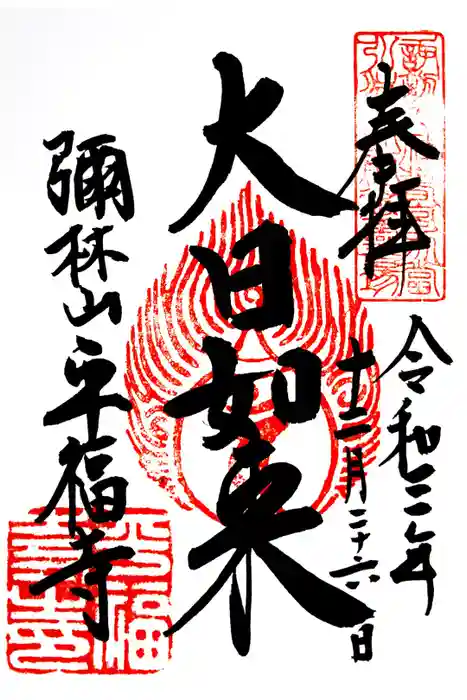 奉拝
令和三年
十二月二十六日
大日如来
彌林山平福寺